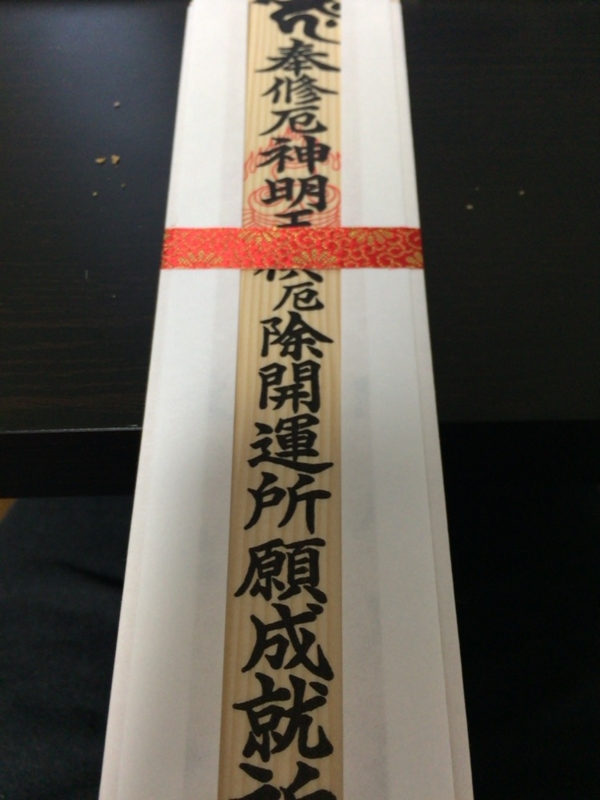 奉修厄神明王厄除開運所願成就祈